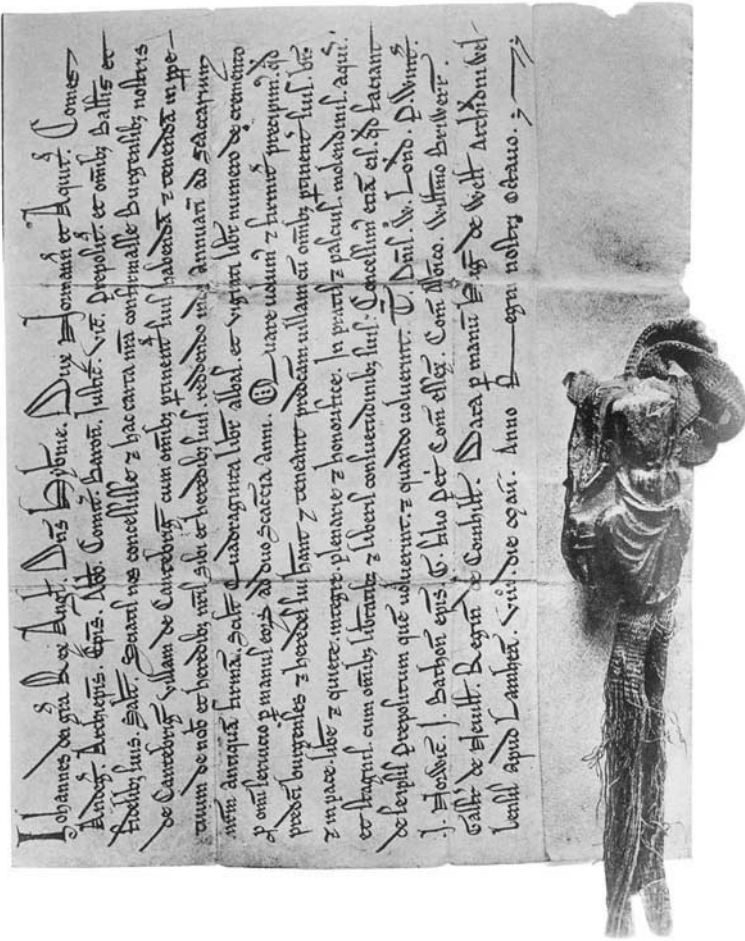 Johannes dei gr̄a Rex Angl̄. Dn̄s Hyb̄nie. Dux Normann̄ et Aquit̄. Comes
Andeḡ. Archiep̄is. Ep̄is. Abb̄. Comit̄. Baron̄. Justic̄. Vic̄. Preposit̄. et om̄ibꝫ Ballis et
fidelibꝫ suis. Salt̄. Sciatis nos concessisse ⁊ hac carta nr̄a confirmasse Burgensibꝫ nostris
de Cantebriḡ villam de Cantebriḡ cum om̄ibꝫ ptinent̄ suis habendā ⁊ tenendā inppe-
tuum de nob̄ et heredibꝫ nr̄is sibi et heredibꝫ suis reddendo inde annuati ad Scaccarium
nr̄m antiquā firmā. scil̄t Quadraginta libr̄ albas. et viginti libr̄ numero de cremento
p om̄i servitio p manus eoꝝ ad duo scaccaria anni. Quare volum ⁊ firmit̄ precipim. qd̄
predc̄i burgenses ⁊ heredes sui hant̄ ⁊ teneant predc̄am villam cū om̄ibꝫ ptinent̄ suis. bn̄
⁊ in pace. libe ⁊ quiete. integre plenarie ⁊ honorifice. In pratis ⁊ pascuis. molendinis. aquis.
et stagnis. cum om̄ibꝫ lib̄tatibꝫ ⁊ liberis consuetudinibꝫ suis. Concessim etiā eis. qd̄ faciant
de seipsis Prepositum quē voluerint. ⁊ quando voluerint. T. Dn̄is. W. Lond̄. P. Wint̄.
J. Norwic̄. J. Bathon̄ ep̄is. G. filio Pet̄ Com̄ essex̄. Com̄ Alb̄ico. Willmo Briwerr̄.
Galfr̄ de Nevill̄. Regin̄ de Cornhill̄. Data p manū Huḡ de Well̄ Archid̄ni Wel-
lensis apud Lamhet̄. viii. die maii. Anno Regni nostri Octavo.